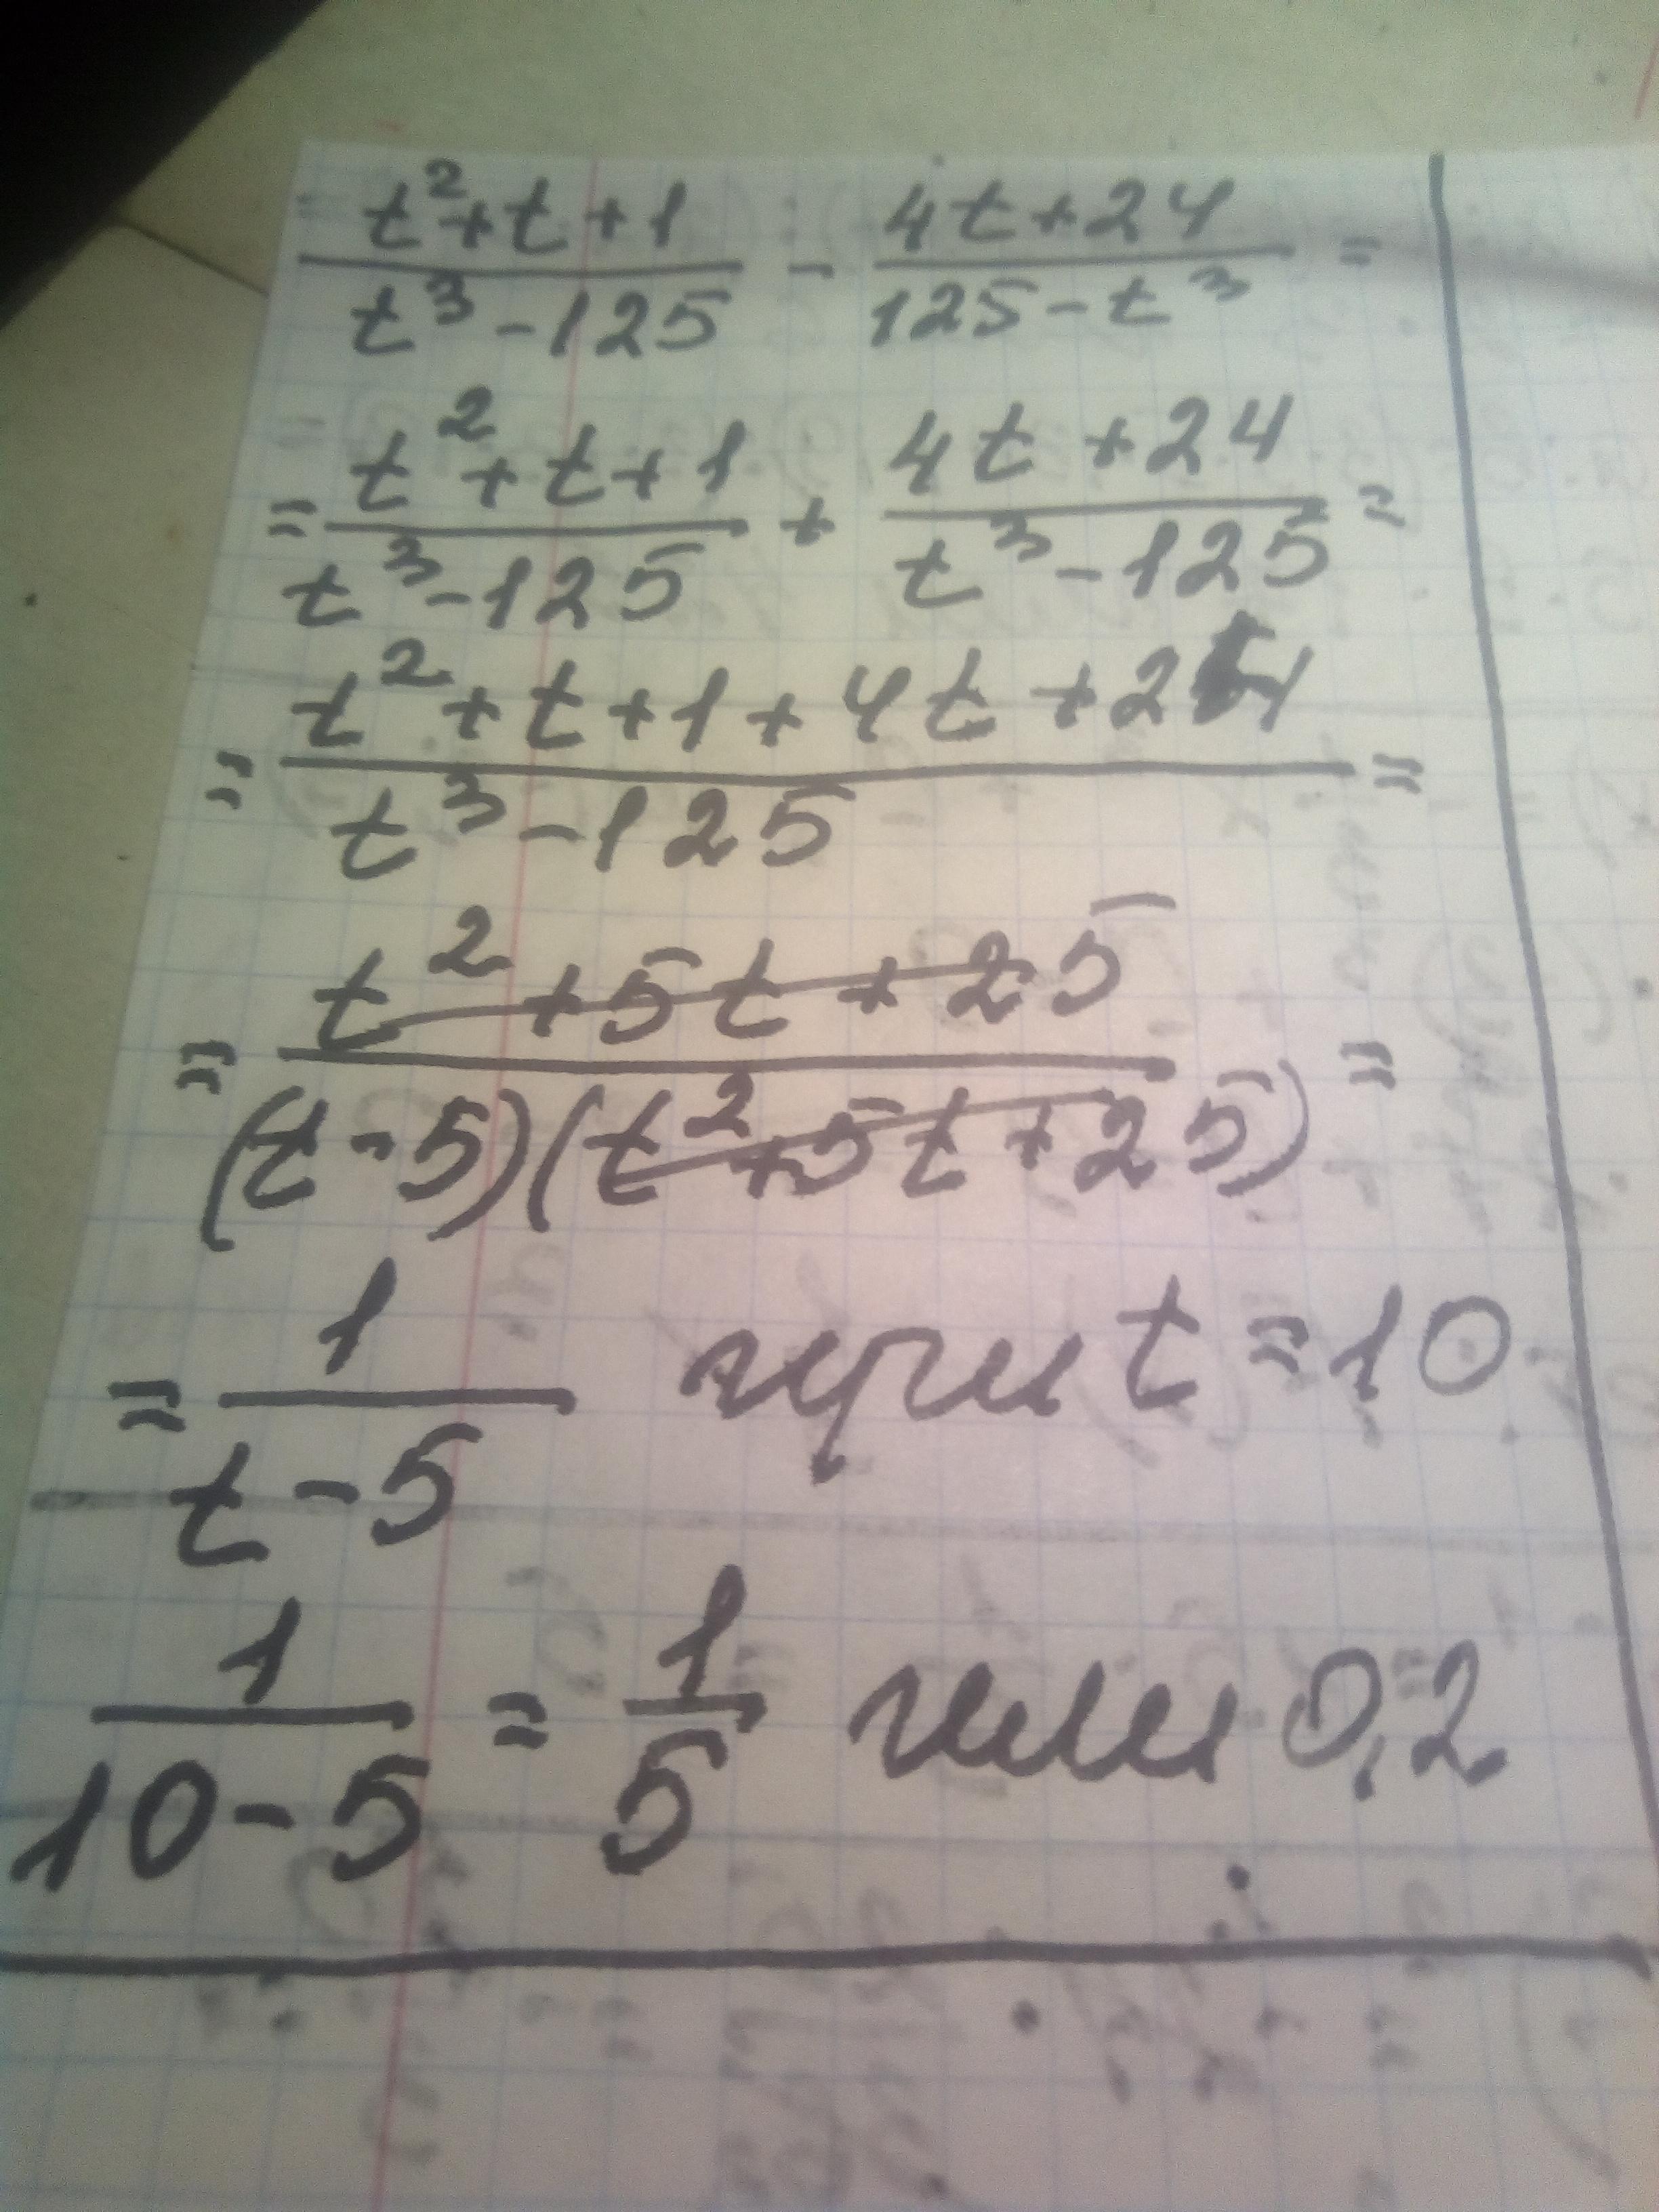 (t²+t+1)/(t³-125) - (4t+24)/(125-t³) =
= (t²+t+1)/(t³-125) + (4t+24)/(t³-125) =
= (t²+t+1+4t+24)/(t³-125) =
= (t²+5t+25)/((t-5)(t²+5t+25)) =
= 1/(t-5) при t=10
1/(10-5) = 1/5 или 0,2